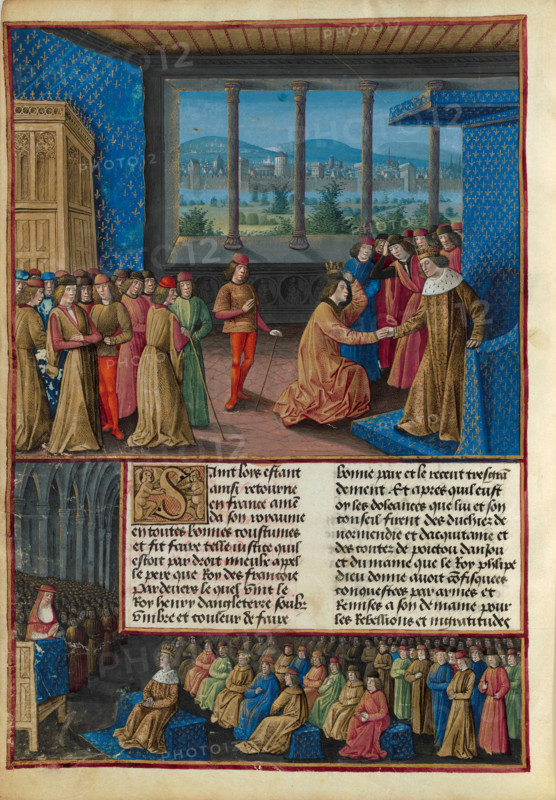 Saint lors estant
ainsi retourne
en france amē
da son royaume
en toutes bonnes coustumes
et fit faire telle iustice quil
estoit par mieulx apel
le pere que Roy des francois
par deuers le quel vint le
Roy henry dangleterre soubz
vmbre et couleur de faire
bonne paix et le receut tresgrā
dement. Et apres quil eust
oy les doleances que lui et son
conseil firent des duchiez de
normendie et dacquitaine et
des contez de poictou daniou
et du mayne que le Roy phelipe
dieu donne auoit cōfisquees
conquestees par armes et
Remises a son demaine pour
les Rebellions et ingratitudes
PHOTO12